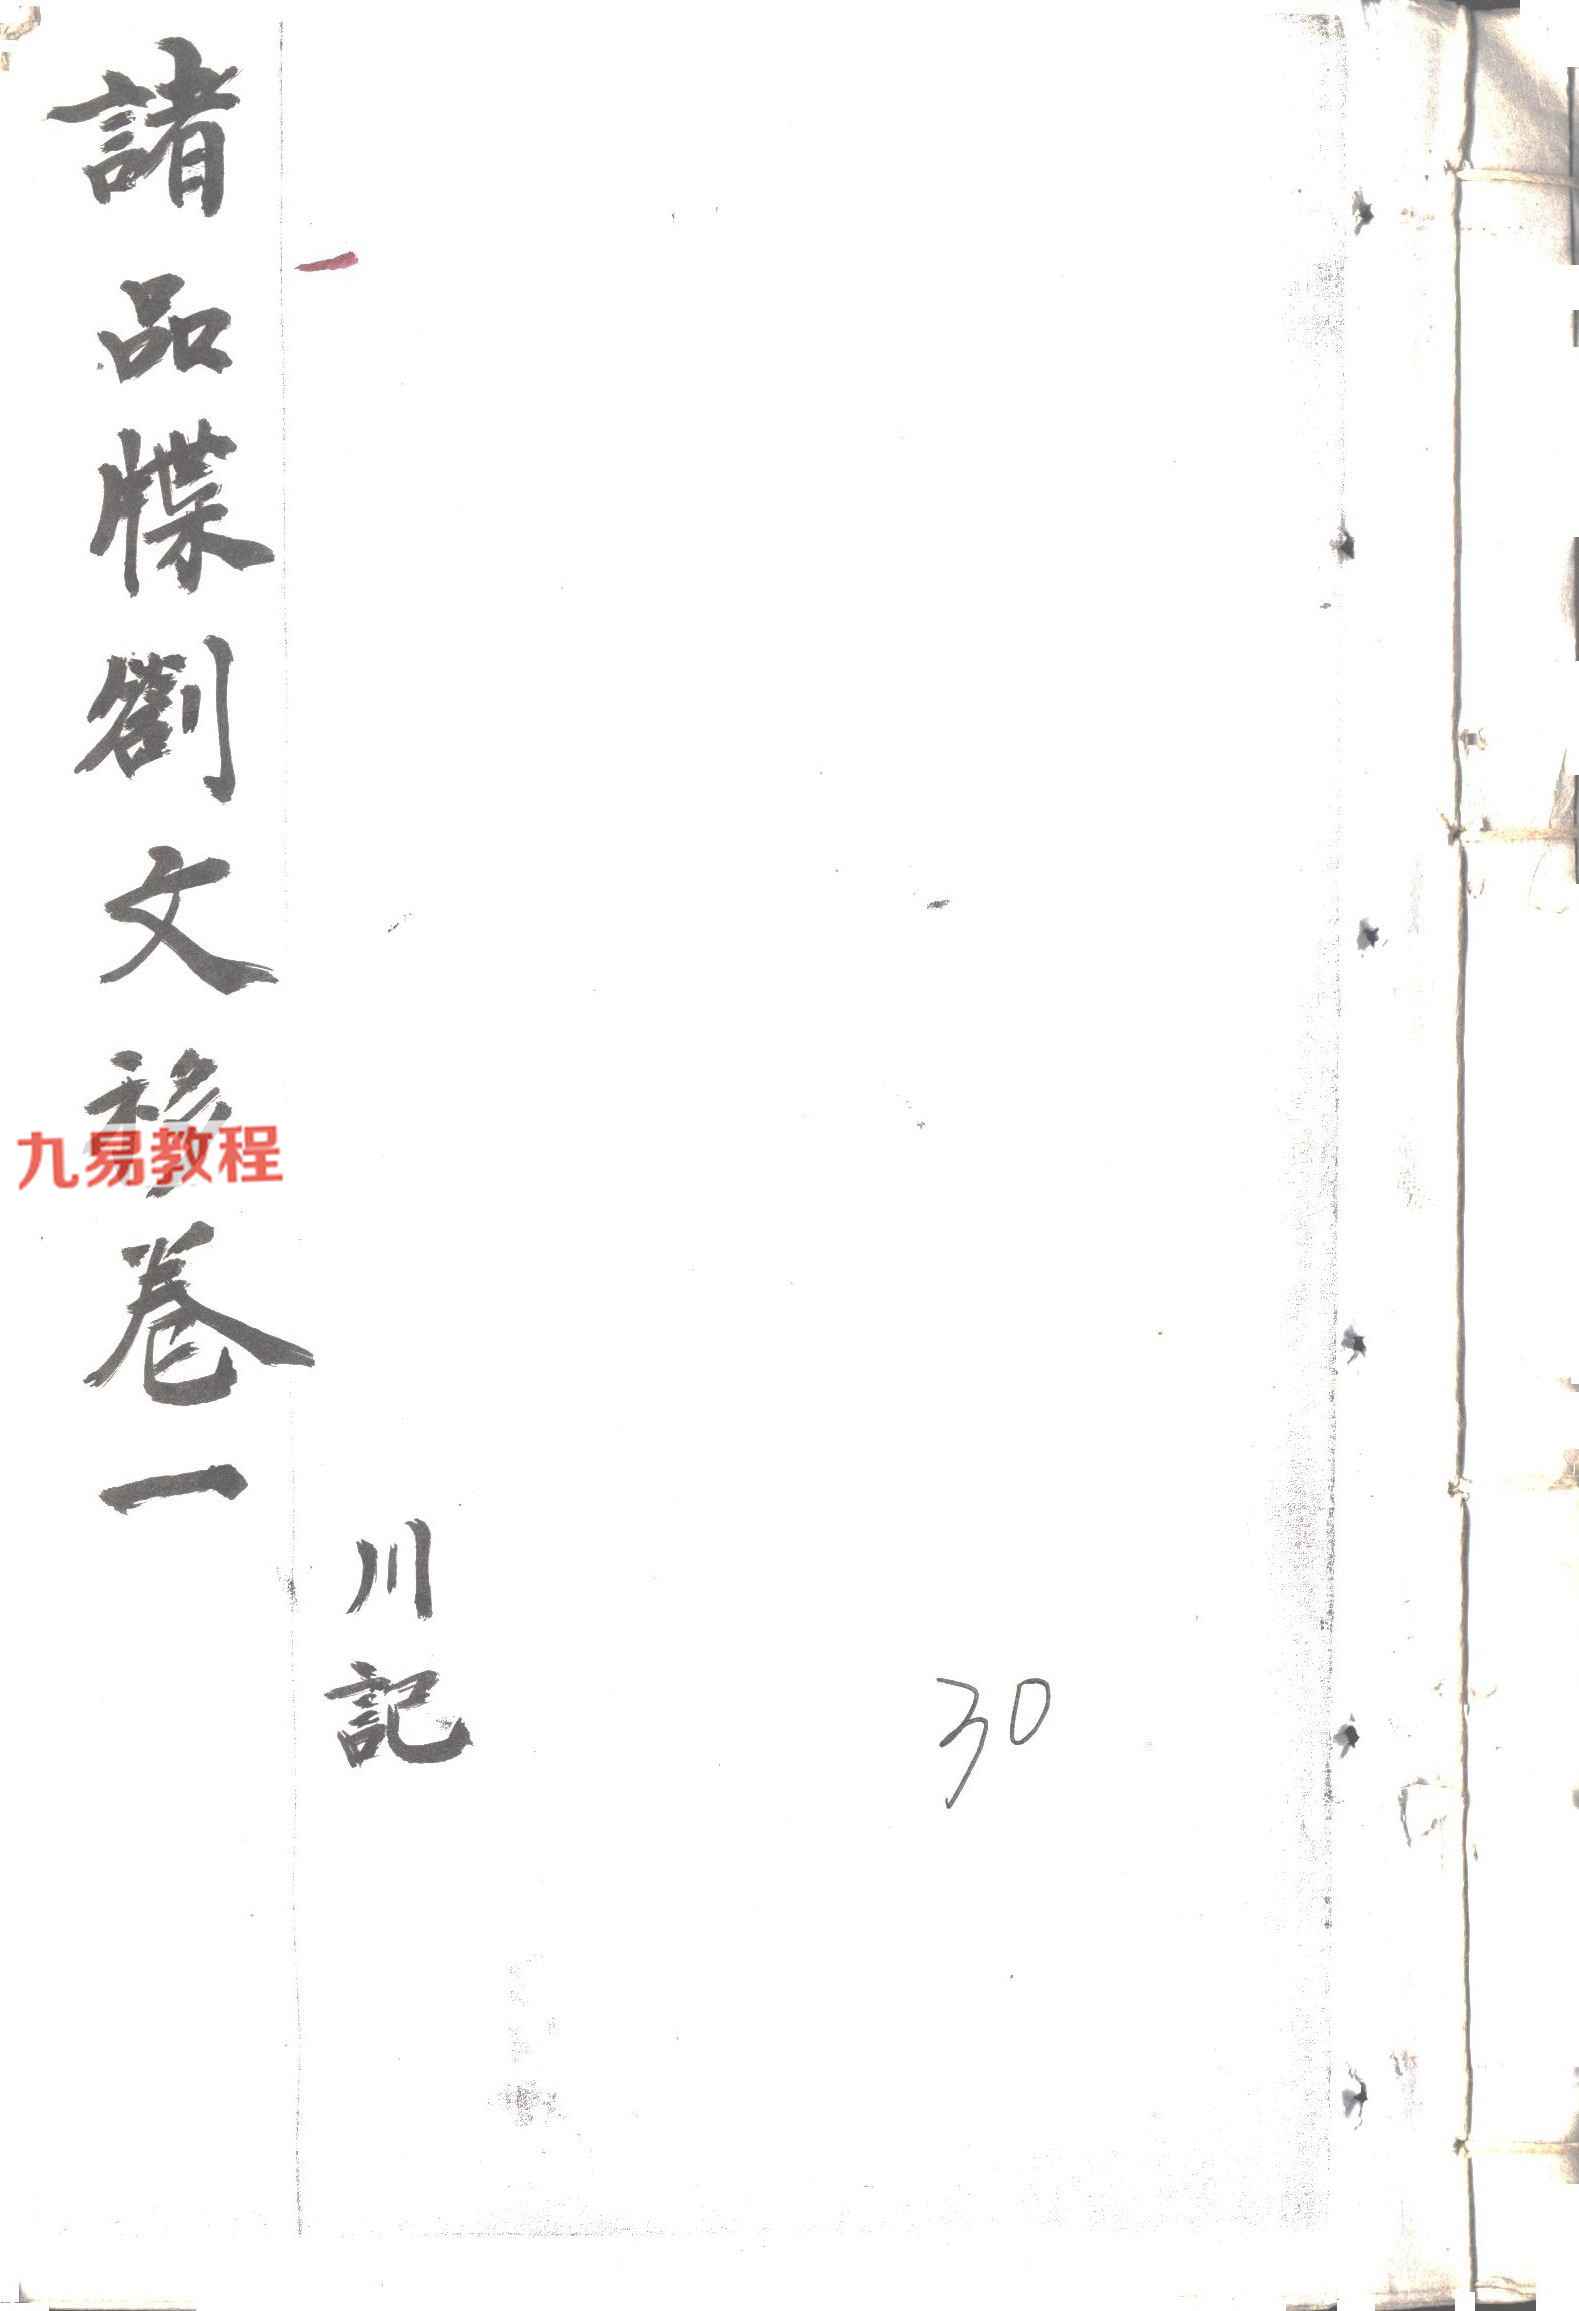 諸品牒劄文移卷一
川記
30
九易教程